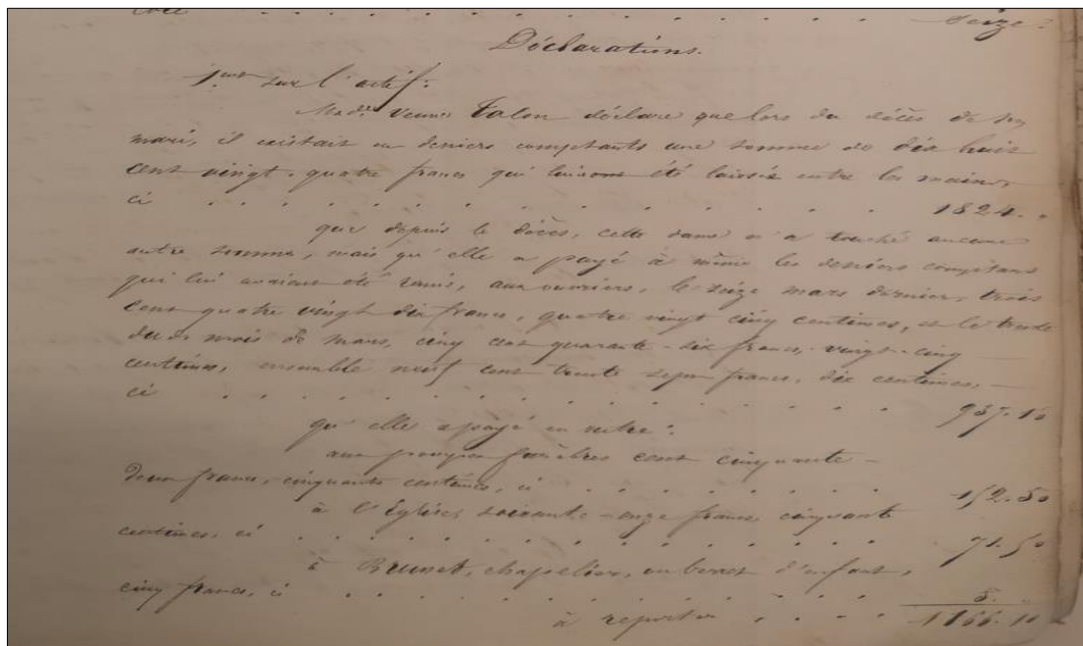 Seize.
Déclarations.
1ent sur l'actif:
Made veuve Talon déclare que lors du décès de son
mari, il existait en deniers comptants une somme de dix huit
cent vingt-quatre francs qui lui ont été laissés entre les mains,
ci . . . . . . . . . . . . . 1824. "
que depuis le décès, cette dame n'a touché aucune
autre somme, mais qu'elle a payé à même les deniers comptans
qui lui avaient été remis, aux ouvriers, le seize mars dernier, trois
cent quatre vingt dix francs, quatre vingt cinq centimes, et le trente
dudi mois de mars, cinq cent quarante-six francs, vingt-cinq
centimes, ensemble neuf cent trente sept francs, dix centimes,
ci . . . . . . . . . . . . . 937.10
qu'elle a payé en outre:
aux pompes funèbres cent cinquante-
deux francs, cinquante centimes, ci . . . . . . . 152.50
à l'Église, soixante-onze francs cinquante
centimes, ci . . . . . . . . . . . . 71.50
à Brunet, chapelier, un berret d'enfant,
cinq francs, ci . . . . . . . . . . . 5. "
à reporter . . . . 1166.10